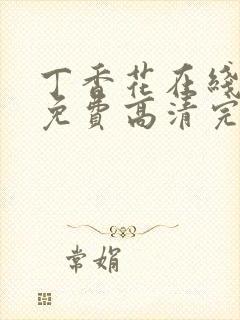 丁香花在线
免费高清完
常娟